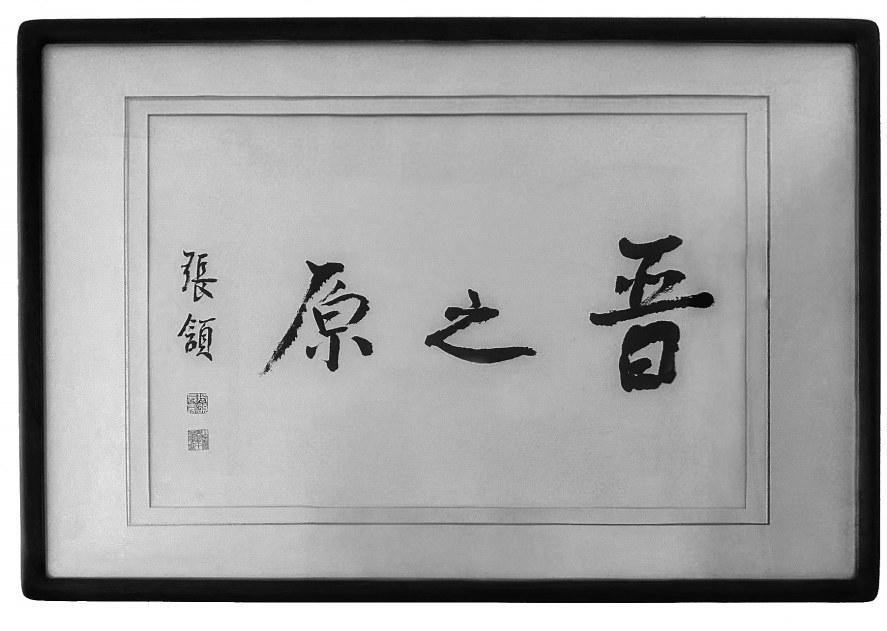 晋之原
張頷